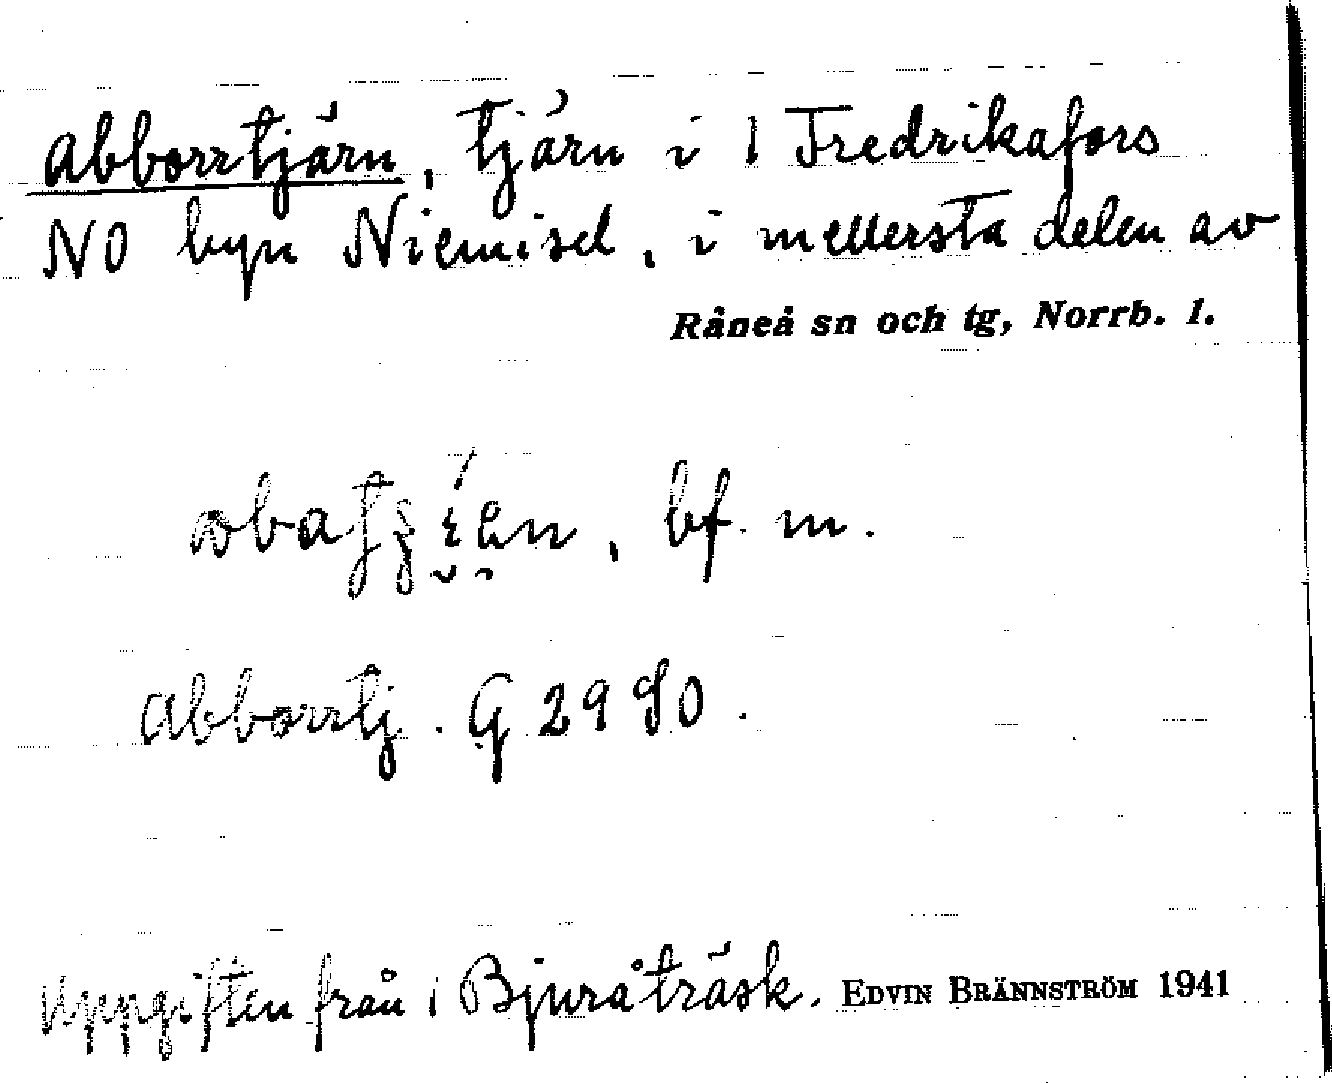 Abborrtjärn, tjärn i 1 Fredrikafors
NO byn Niemisel, i mellersta delen av
Råneå sn och tg, Norrb. l.
bf. m.
Abborrtj. G 2980.
Uppgiften från 1 Bjuråträsk. EDVIN BRÄNNSTRÖM 1941